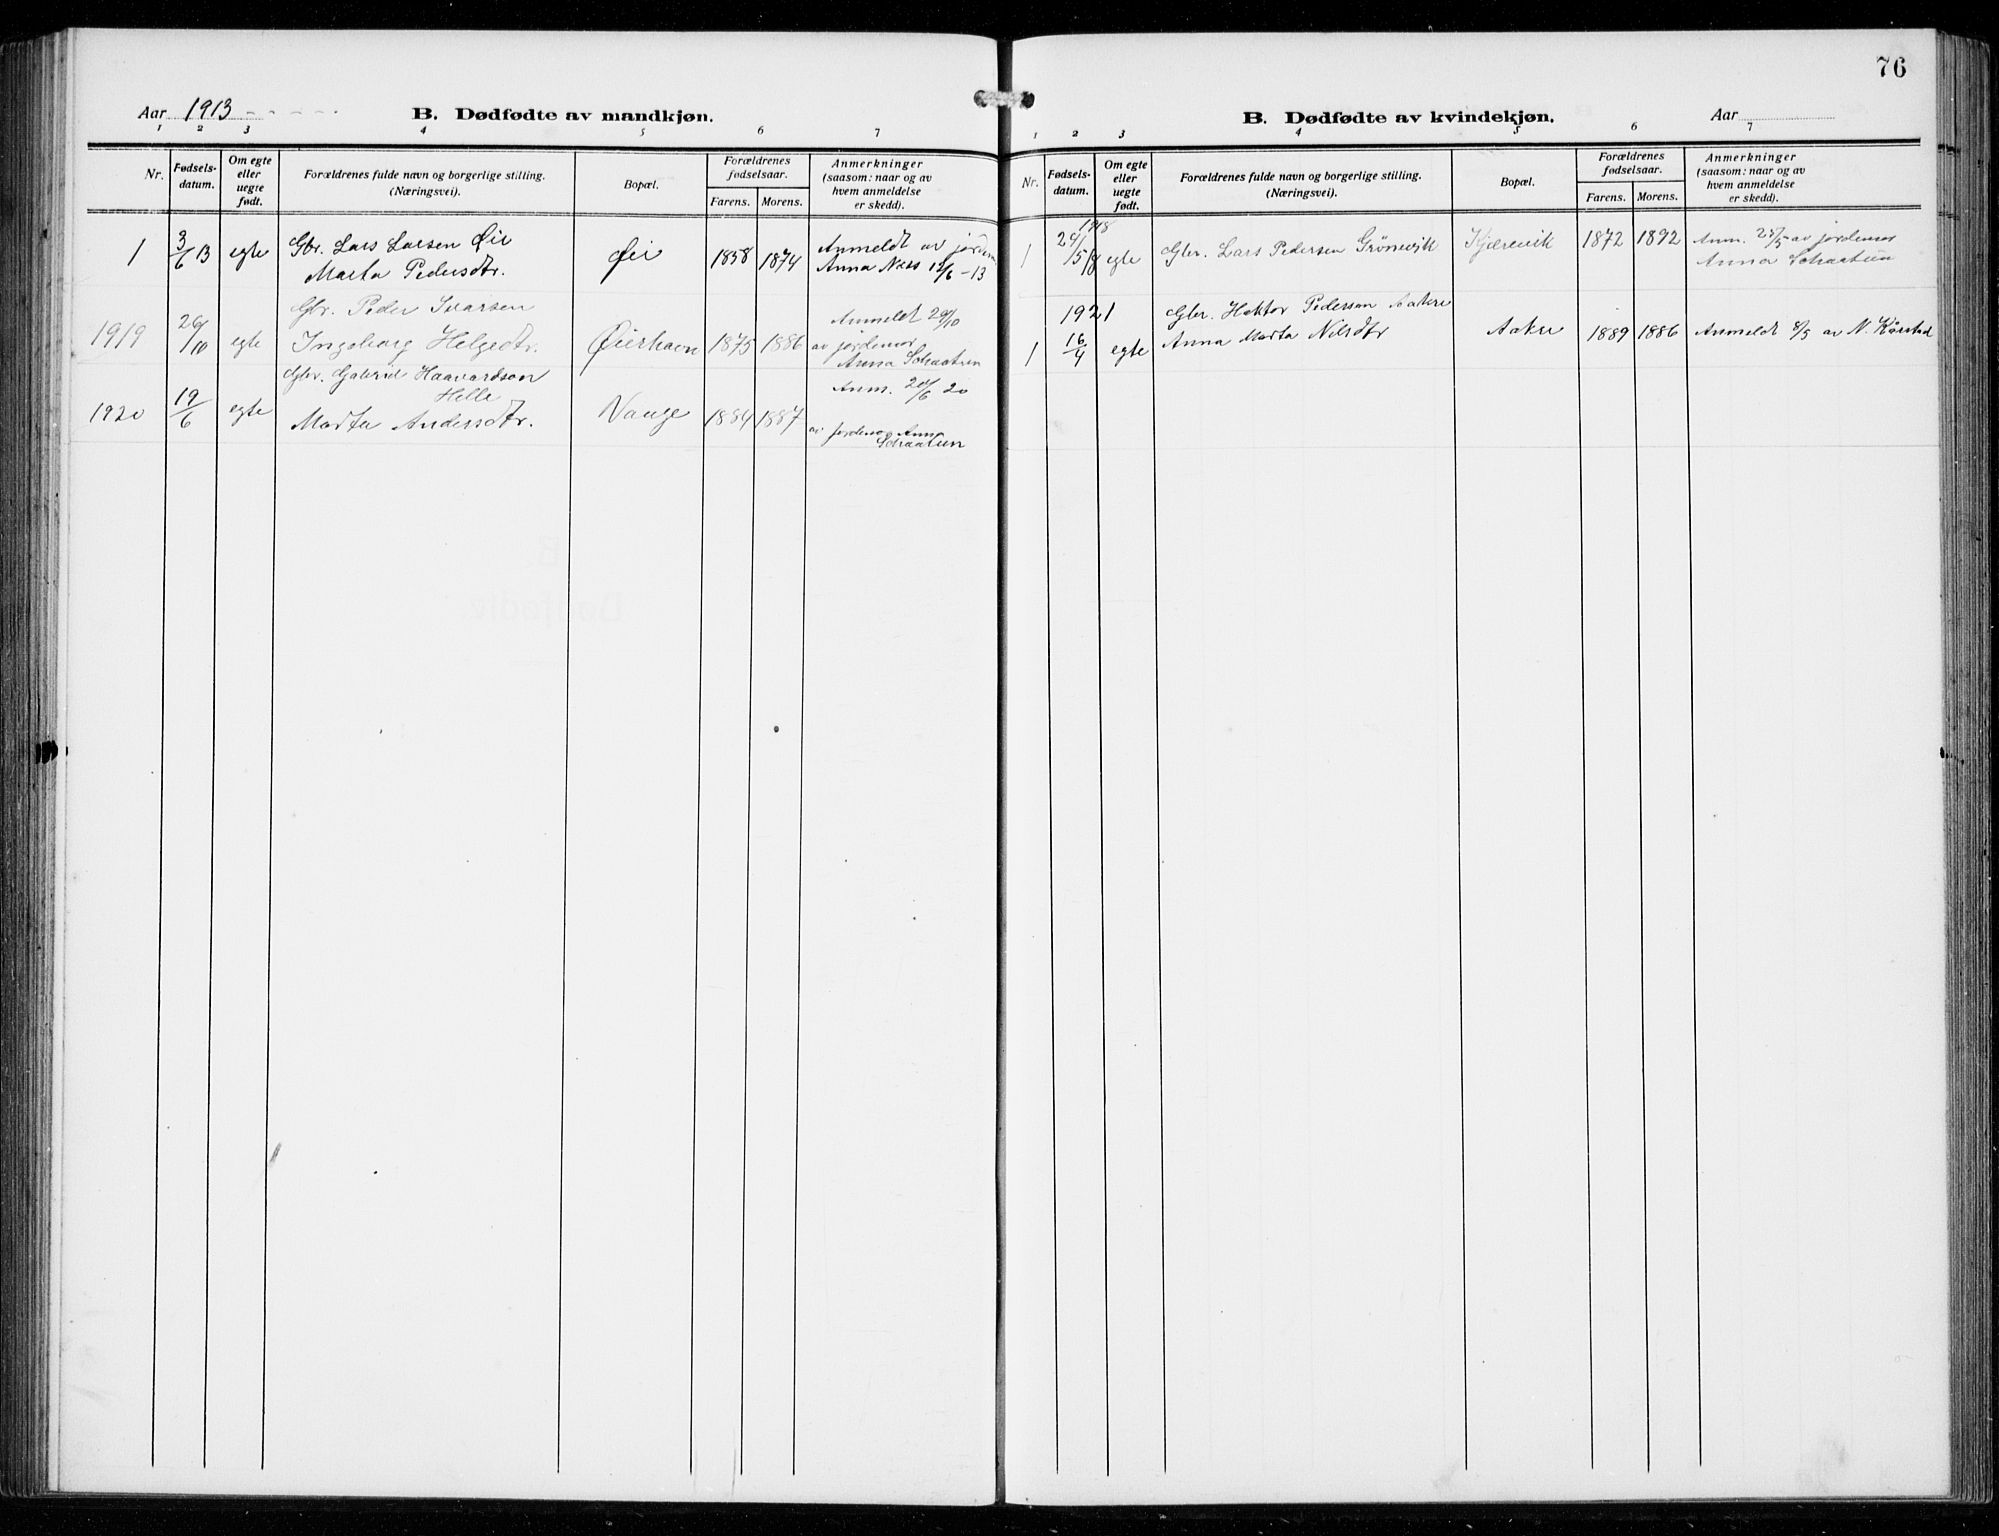 76
Aar 1913
B. Dødfødte av mandkjøn.
1 2 3 4 5 6 7
Nr.
Fødsels-
datum.
Om egte
eller
uegte
født.
Forældrenes fulde navn og borgerlige stilling.
(Næringsvei).
Bopæl.
Forældrenes
fødselsaar.
Farens. Morens.
Anmerkninger
(saasom: naar og av
hvem anmeldelse
er skedd).
1 3/6 13 egte Gbr. Lars Larsen Øie Øie 1858 1874 Anmeldt av jordem
Marta Pedersdtr. Anna Næs 12/6 - 13
Gbr. Peder Ivarsen Anmeldt 29/10
1919 26/10 egte Ingeborg Helgedtr. Øierhavn 1875 1886 av jordemor
Anna Schaatun
Gbr. Gabriel Haavardson Anm. 20/6 20
Helle
1920 19/6 egte Marta Andersdtr. Vauge 1884 1887 av jordemor Anna
Schaatun
B. Dødfødte av kvindekjøn.
Aar
1 2 3 4 5 6 7
Nr.
Fødsels-
datum.
Om egte
eller
uegte
født.
Forældrenes fulde navn og borgerlige stilling.
(Næringsvei).
Bopæl.
Forældrenes
fødselsaar.
Farens. Morens.
Anmerkninger
(saasom: naar og av
hvem anmeldelse
er skedd).
1918
1 24/5 18 egte Gbr. Lars Pedersen Grønevik Kjærevik 1872 1892 Anm. 28/5 av jordemor
Anna Schaatun
1921 Gbr. Hektor Pederson Aakre
1 16/4 egte Anna Marta Nilsdtr Aakre 1889 1886 Anmeldt 8/5 av N. Kårstad